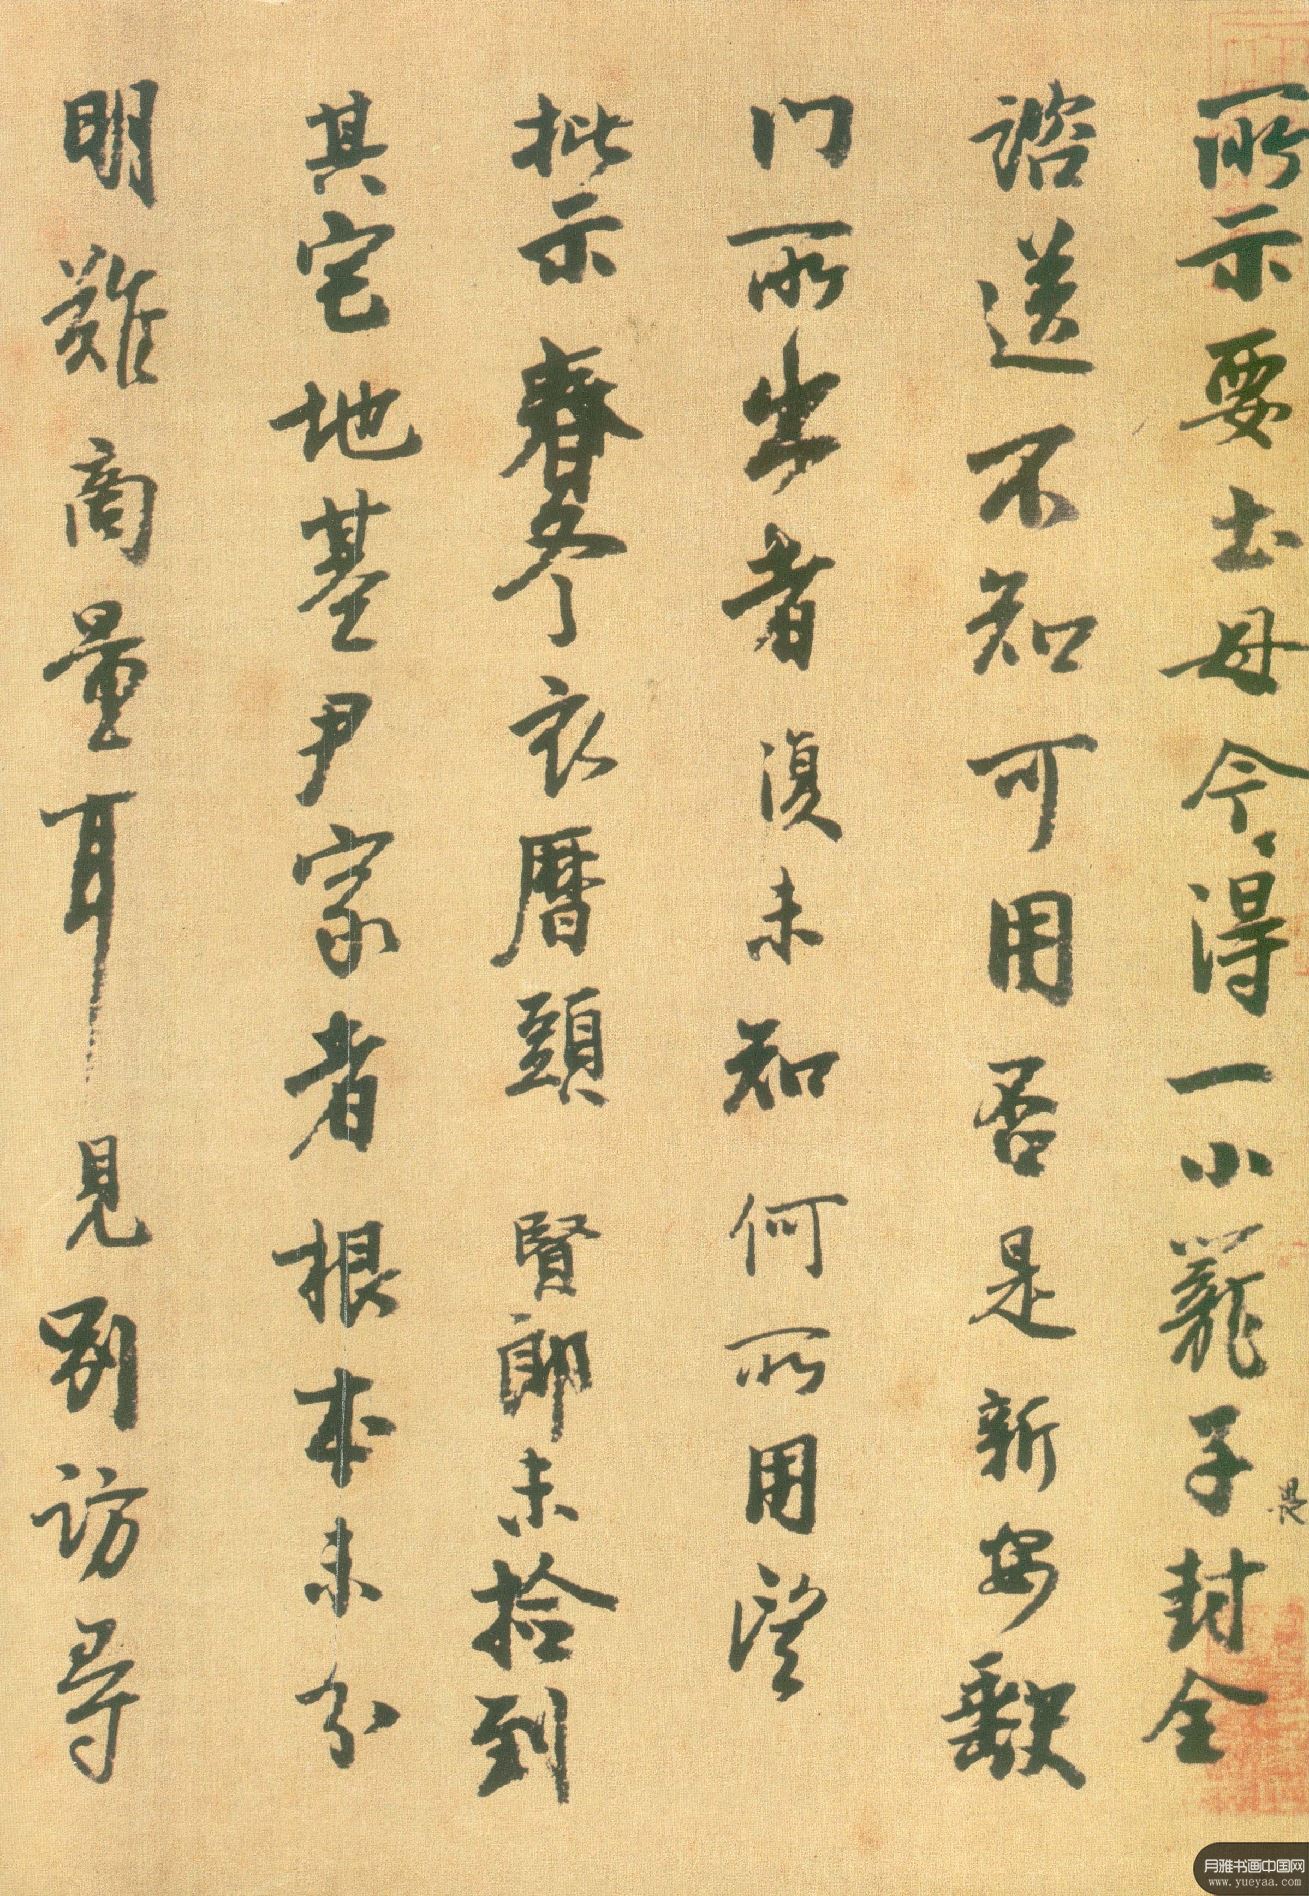 所示要土母今得一小籠子封全
諮送不知可用否是新安歙
門所出者復未知何所用望
批示春冬衣曆頭賢郎未撿到
其宅地基尹家者根本未分
明難商量耳見別訪尋
是
月雅书画中国网
www.yueyaa.com